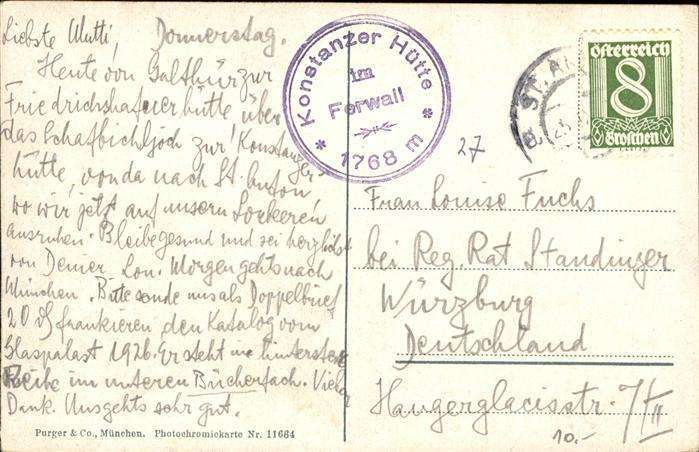 Liebste Mutti, Donnerstag.
Heute von Galthür zur
Friedrichshafenerhütte über
das Schafbichljoch zur Konstanzer-
hütte, von da nach St. Anton
wo wir jetzt auf unsern Lorbeeren
ausruhen. Bleibe gesund und sei herzlichst
von Deiner Lou. Morgen gehts nach
München. Bitte sende uns als Doppelbrief
20 frankieren den Katalog vom
Glaspalast 1926. Er steht hinterste
Reihe im unteren Bücherfach. Vielen
Dank. Uns gehts sehr gut.
Purger & Co., München. Photochromiekarte Nr. 11664
Konstanzer Hütte
im
Ferwall
* 1768 m *
27
ST. AN
österreich
8
Groschen
Frau Louise Fuchs
bei Reg. Rat Standinger
Würzburg
Deutschland
Haugerglacisstr. 7/II
10.-